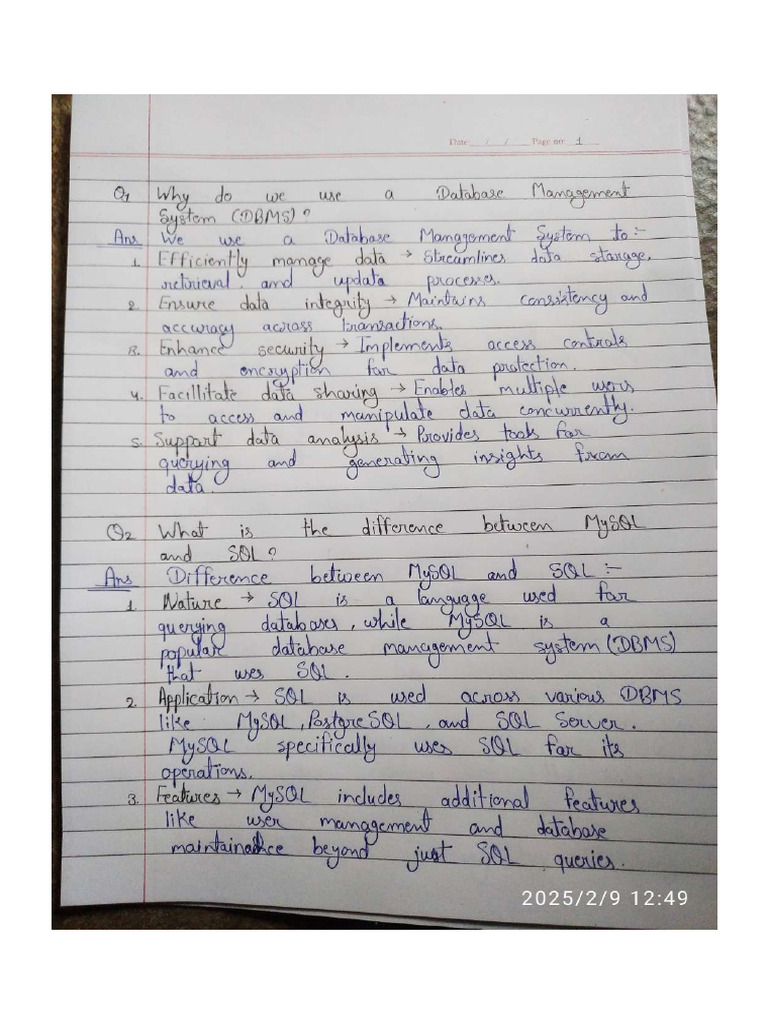 Date / / Page no: 1
Q1 Why do we use a Database Management
System (DBMS)?
Ans We use a Database Management System to:-
1. Efficiently manage data → Streamlines data storage,
retrieval, and updata processes.
2. Ensure data integrity → Maintains consistency and
accuracy across transactions.
3. Enhance security → Implements access controls
and encryption for data protection.
4. Facillitate data sharing → Enables multiple users
to access and manipulate data concurrently.
5. Support data analysis → Provides tools for
querying and generating insights from
data.
Q2 What is the difference between MySQL
and SQL?
Ans Difference between MySQL and SQL :-
1. Nature → SQL is a language used for
querying databases, while MySQL is a
popular database management system (DBMS)
that uses SQL.
2. Application → SQL is used across various DBMS
like MySQL, PostgreSQL, and SQL Server.
MySQL specifically uses SQL for its
operations.
3. Features → MySQL includes additional features
like user management and database
maintainance beyond just SQL queries.
2025/2/9 12:49